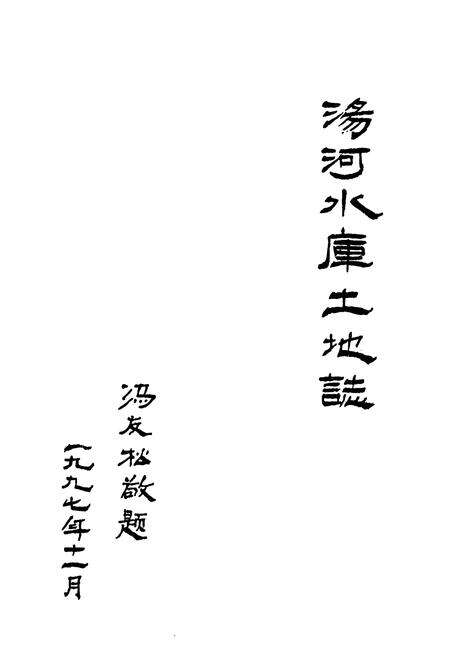 湯河水庫土地誌
冯友松敬题
一九九七年十一月